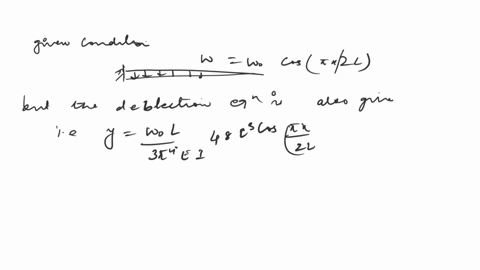 given condition
w = w₀ cos(πx/2L)
but the deflection eqⁿ is also give
i.e y = w₀ L / 3π⁴ E I 48 L³ cos (πx / 2L